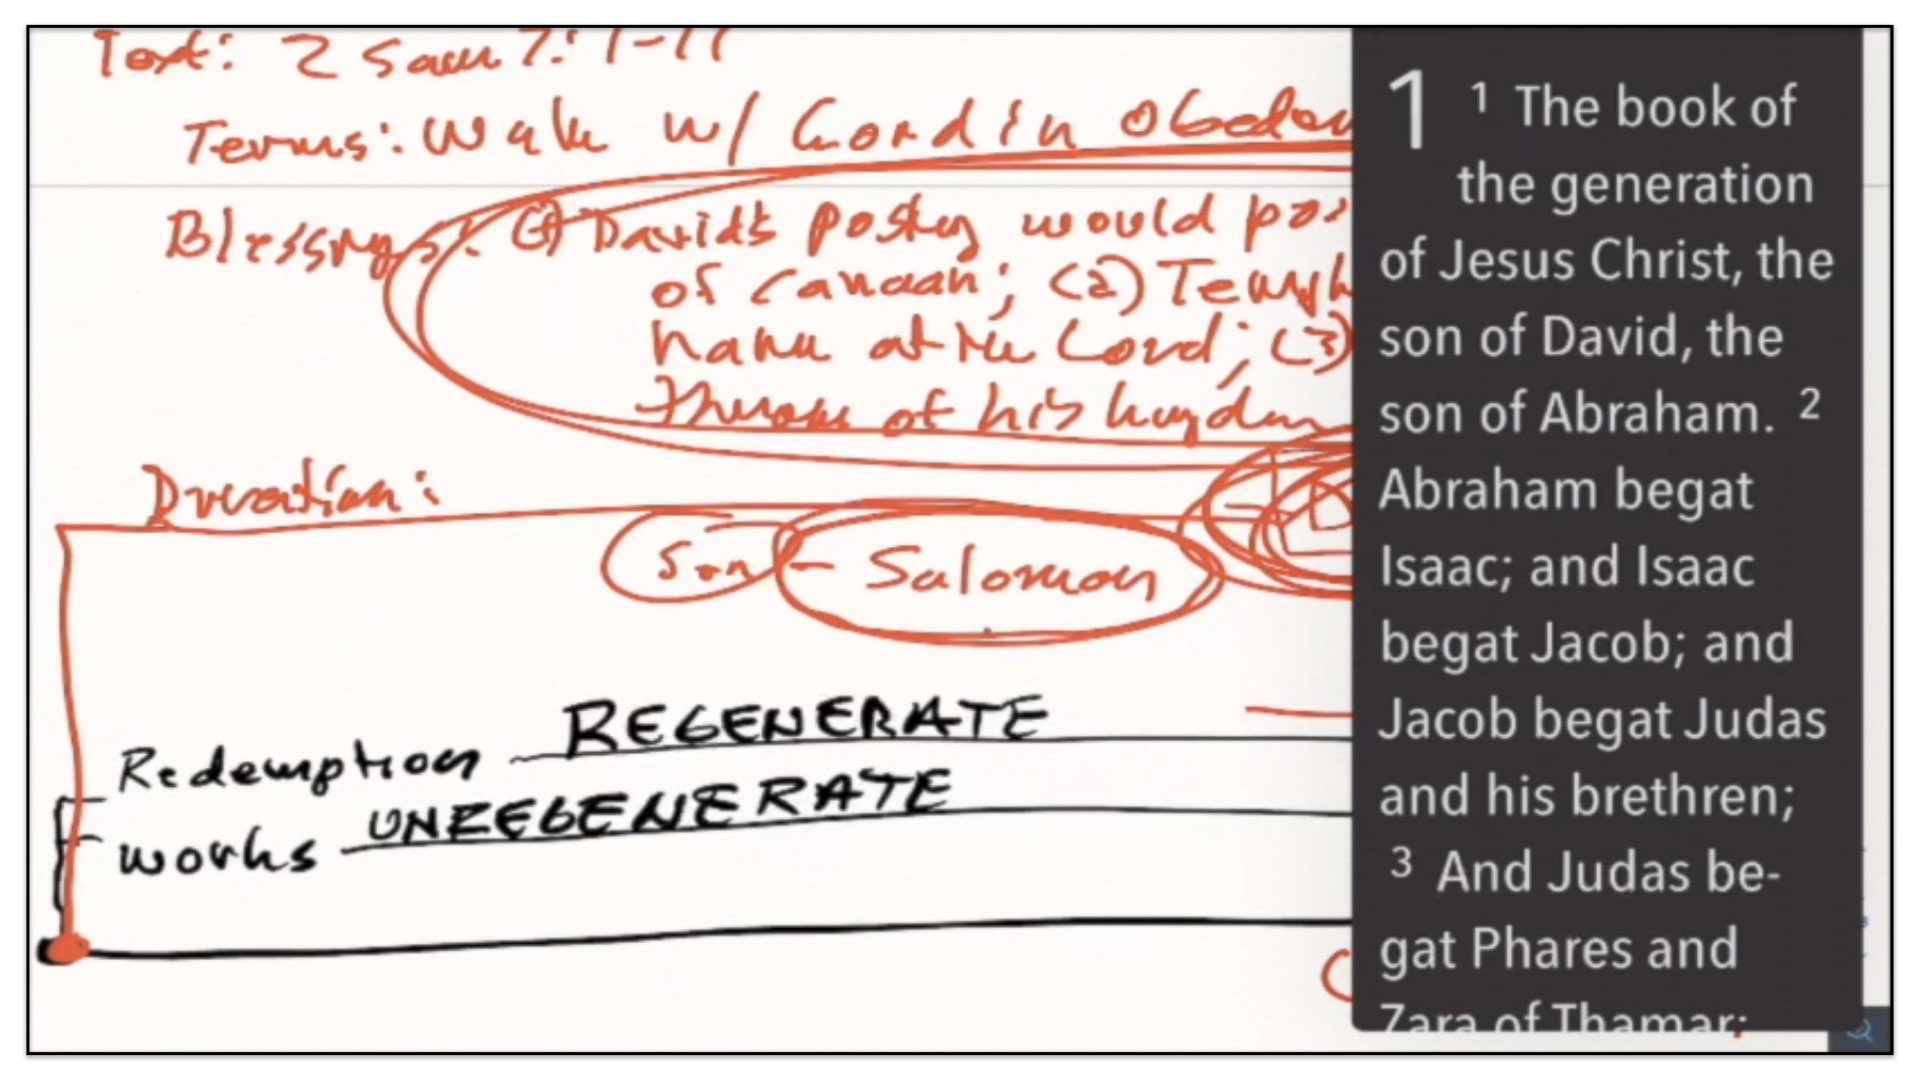 Text: 2 Sam 7:1-17
Terms: Walk w/ Lord in
Blessings: (1) Davids would
of Canaan; (2)
name at the Lord; (3)
throne of his
Duration:
Son - Solomon
Redemption REGENERATE
works UNREGENERATE
1 1 The book of
the generation
of Jesus Christ, the
son of David, the
son of Abraham. 2
Abraham begat
Isaac; and Isaac
begat Jacob; and
Jacob begat Judas
and his brethren;
3 And Judas be-
gat Phares and
Zara of Thamar;